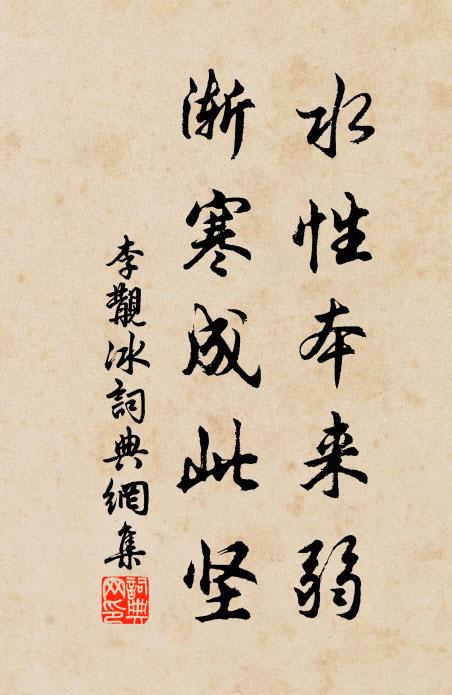 水性本来弱
渐寒成此坚
李覯冰詞典網集
詞典网印